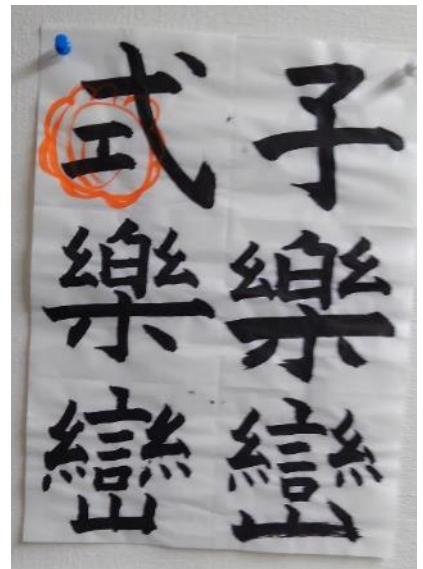 子樂巒
式樂巒